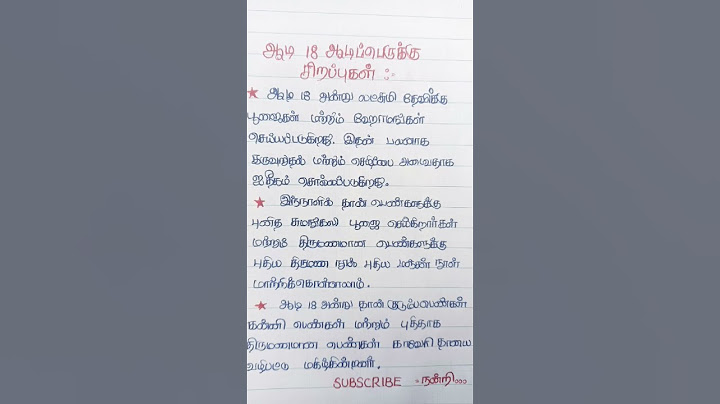 ஆடி 18 ஆடிப்பெருக்கு
சிறப்புகள் :-
★ ஆடி 18 அன்று லட்சுமி தேவிக்கு
பூஜைகள் மற்றும் ஹோமங்கள்
செய்யப்படுகிறது. இதன் பலனாக
கருவுறுதல் மற்றும் செழிப்பை அடைவதாக
ஐதீகம் சொல்லப்படுகிறது.
★ இந்நாளில் தான் பெண்களுக்கு
புனித சுமங்கலி பூஜை செய்கிறார்கள்
மற்றும் திருமணமான பெண்களுக்கு
புதிய திருமண நூல் புதிய மஞ்சள் நூல்
மாற்றிக்கொள்ளலாம்.
★ ஆடி 18 அன்று தான் குடும்பபெண்கள்
கன்னி பெண்கள் மற்றும் புதிதாக
திருமணமான பெண்கள் காவேரி தாயை
வழிபட்டு மகிழ்கின்றனர்.
SUBSCRIBE -நன்றி...